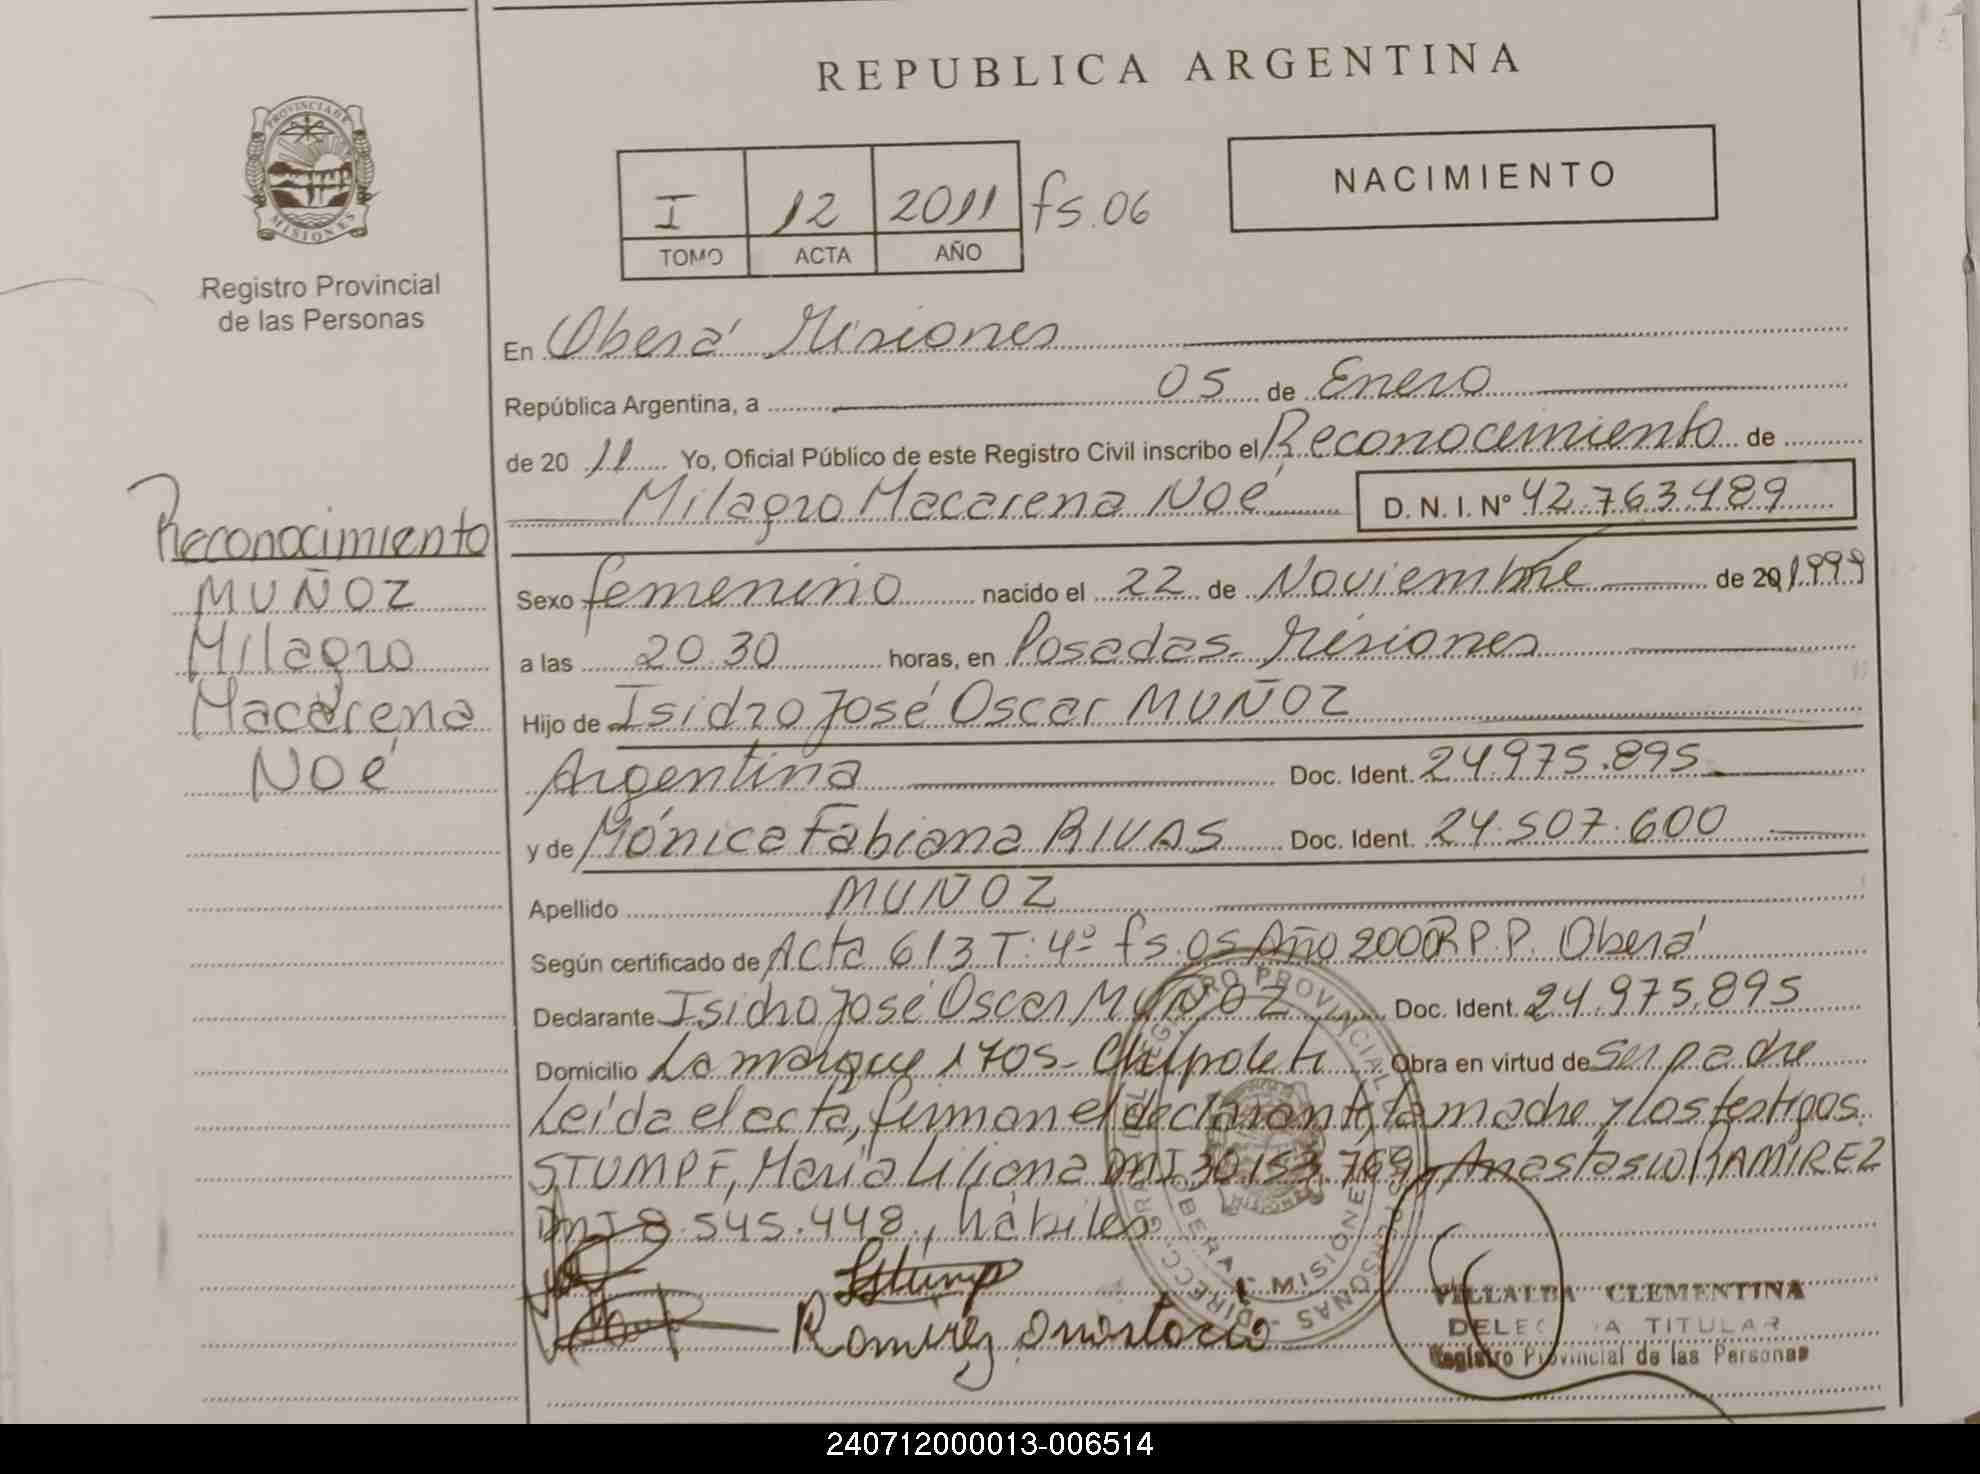 REPUBLICA ARGENTINA
PROVINCIA DE
MISIONES
Registro Provincial
de las Personas
I 12 2011 fs.06
TOMO ACTA AÑO
NACIMIENTO
En Oberá Misiones
República Argentina, a 05 de Enero
de 20 11 Yo, Oficial Público de este Registro Civil inscribo el Reconocimiento de
Milagro Macarena Noé D. N. I. Nº 42.763.489
Reconocimiento
MUÑOZ
Milagro
Macarena
Noé
Sexo femenino nacido el 22 de Noviembre de 20 1999
a las 20.30 horas, en Posadas. Misiones
Hijo de Isidro José Oscar MUÑOZ
Argentina Doc. Ident. 24.975.895
y de Mónica Fabiana RIVAS Doc. Ident. 24.507.600
Apellido MUÑOZ
Según certificado de Acta 613 T: 4º fs.05 Año 2000 R P.P. Oberá
Declarante Isidro José Oscar MUÑOZ Doc. Ident. 24.975.895
Domicilio Lamarque 1705- Obra en virtud de ser padre
Leída el acta, firman el declarante, la madre y los testigos.
STUMPF, María Liliana DNI 30.153.769 y Anastasio RAMIREZ
DNI 8.545.448, hábiles
Stump
Ramirez Anastacio
VILLALBA CLEMENTINA
TITULAR
Registro Provincial de las Personas
240712000013-006514